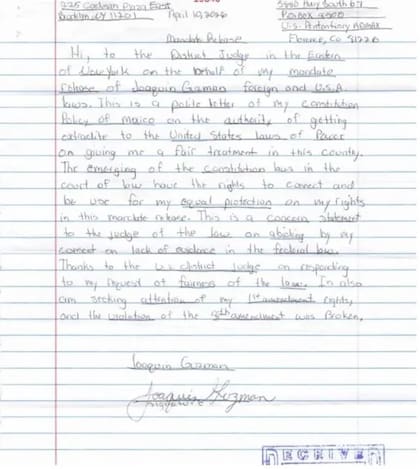 225 Cadman Plaza East
Brooklyn, NY 11201
April 10, 2026
5880 Hwy South 67
PO Box 8500
U.S. Penitentiary ADMAX
Florence, Co 81226
Mandate Release
Hi, to the District Judge in the Eastern
of New York on the behalf of my mandate
release of Joaquin Guzman foreign and U.S.A
laws. This is a polite letter of my constitution
Policy of maico on the authority of getting
extradite to the United States laws of Power
on giving me a fair treatment in this country.
The emerging of the constitution laws in the
court of law have the rights to correct and
be use for my equal protection on my rights
in this mandate release. This is a concern statement
to the judge of the law on abiding by my
comment on lack of evidence in the federal law.
Thanks to the U.S. district Judge on responding
to my request of fairness of the law. In also
am seeking attention of my 1st amendment rights,
and the violation of the amendment was Broken.
Joaquin Guzman
Joaquin Guzman
signature
RECEIVED